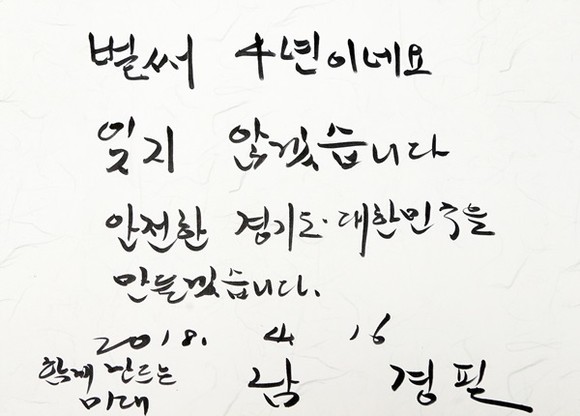 벌써 4년이네요
잊지 않겠습니다
안전한 경기도·대한민국을
만들겠습니다.
2018. 4 16
함께 만드는
미래
남 경필